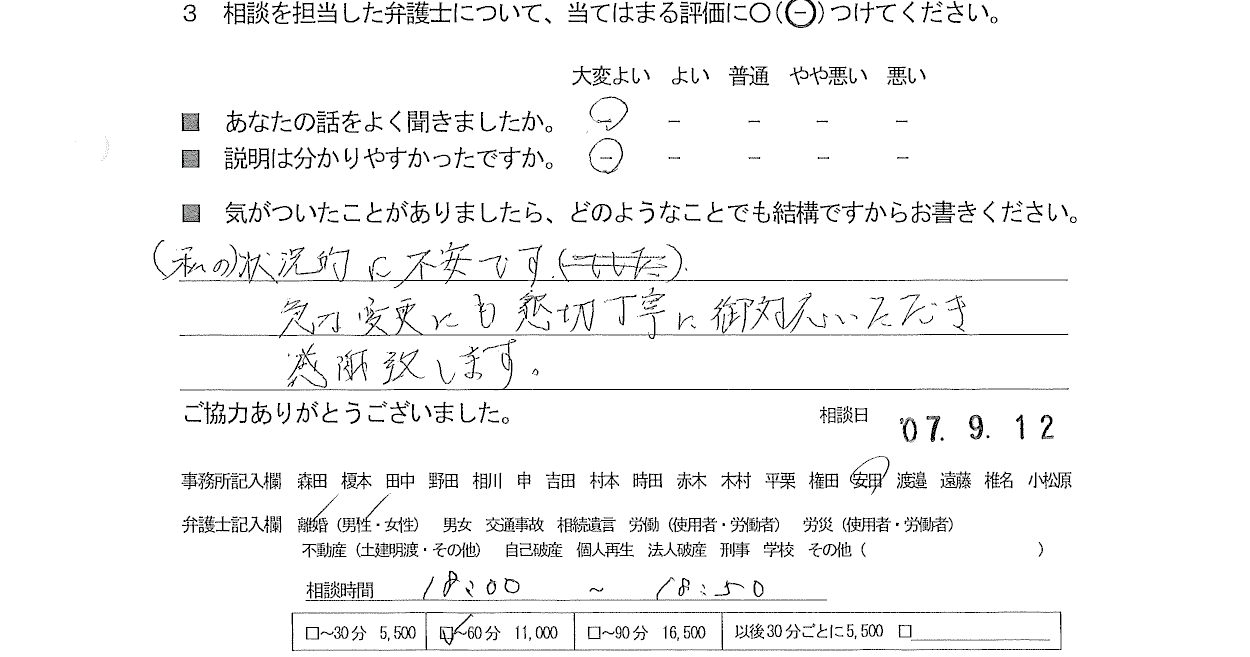 3 相談を担当した弁護士について、当てはまる評価に○(⊖)つけてください。
大変よい よい 普通 やや悪い 悪い
■ あなたの話をよく聞きましたか。 － － － － －
■ 説明は分かりやすかったですか。 － － － － －
■ 気がついたことがありましたら、どのようなことでも結構ですからお書きください。
(私の)状況的に不安です(でした)。
急な変更にも懇切丁寧に御対応いただき
感謝致します。
ご協力ありがとうございました。
相談日 '07. 9. 12
事務所記入欄 森田 榎本 田中 野田 相川 申 吉田 村本 時田 赤木 木村 平栗 権田 安田 渡邉 遠藤 椎名 小松原
弁護士記入欄 離婚(男性・女性) 男女 交通事故 相続遺言 労働(使用者・労働者) 労災(使用者・労働者)
不動産(土建明渡・その他) 自己破産 個人再生 法人破産 刑事 学校 その他( )
相談時間 18:00 ~ 18:50
□~30分 5,500 □~60分 11,000 □~90分 16,500 以後30分ごとに5,500 □